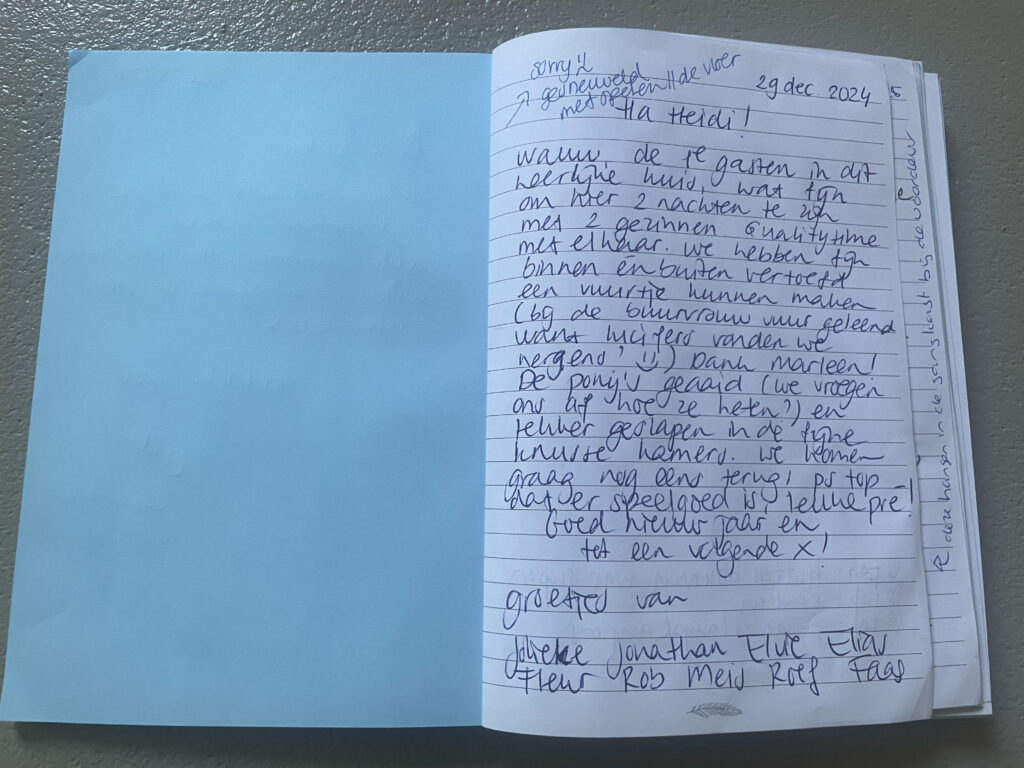 sorry is
gesneuveld
met spelen // de vloer
29 dec. 2024
Ha Heidi!
wauw, de 1e gasten in dit
heerlijke huis, wat fijn
om hier 2 nachten te zijn
met 2 gezinnen Qualitytime
met elkaar. we hebben fijn
binnen én buiten vertoefd
een vuurtje kunnen maken
(bij de buurvrouw vuur geleend
want lucifers vonden we
nergens! ☺) Dank Marleen!
De pony's geaaid (we vroegen
ons af hoe ze heten?) en
lekker geslapen in de fijne
knusse kamers. we komen
graag nog eens terug! ps top
dat er speelgoed is, leuke pré!
Goed nieuw jaar en
tot een volgende x!
groetjes van
Jolieke Jonathan Elvie Elias
Fleur Rob Meis Roef Faas
deze hangen in de schuifkast bij de voordeur